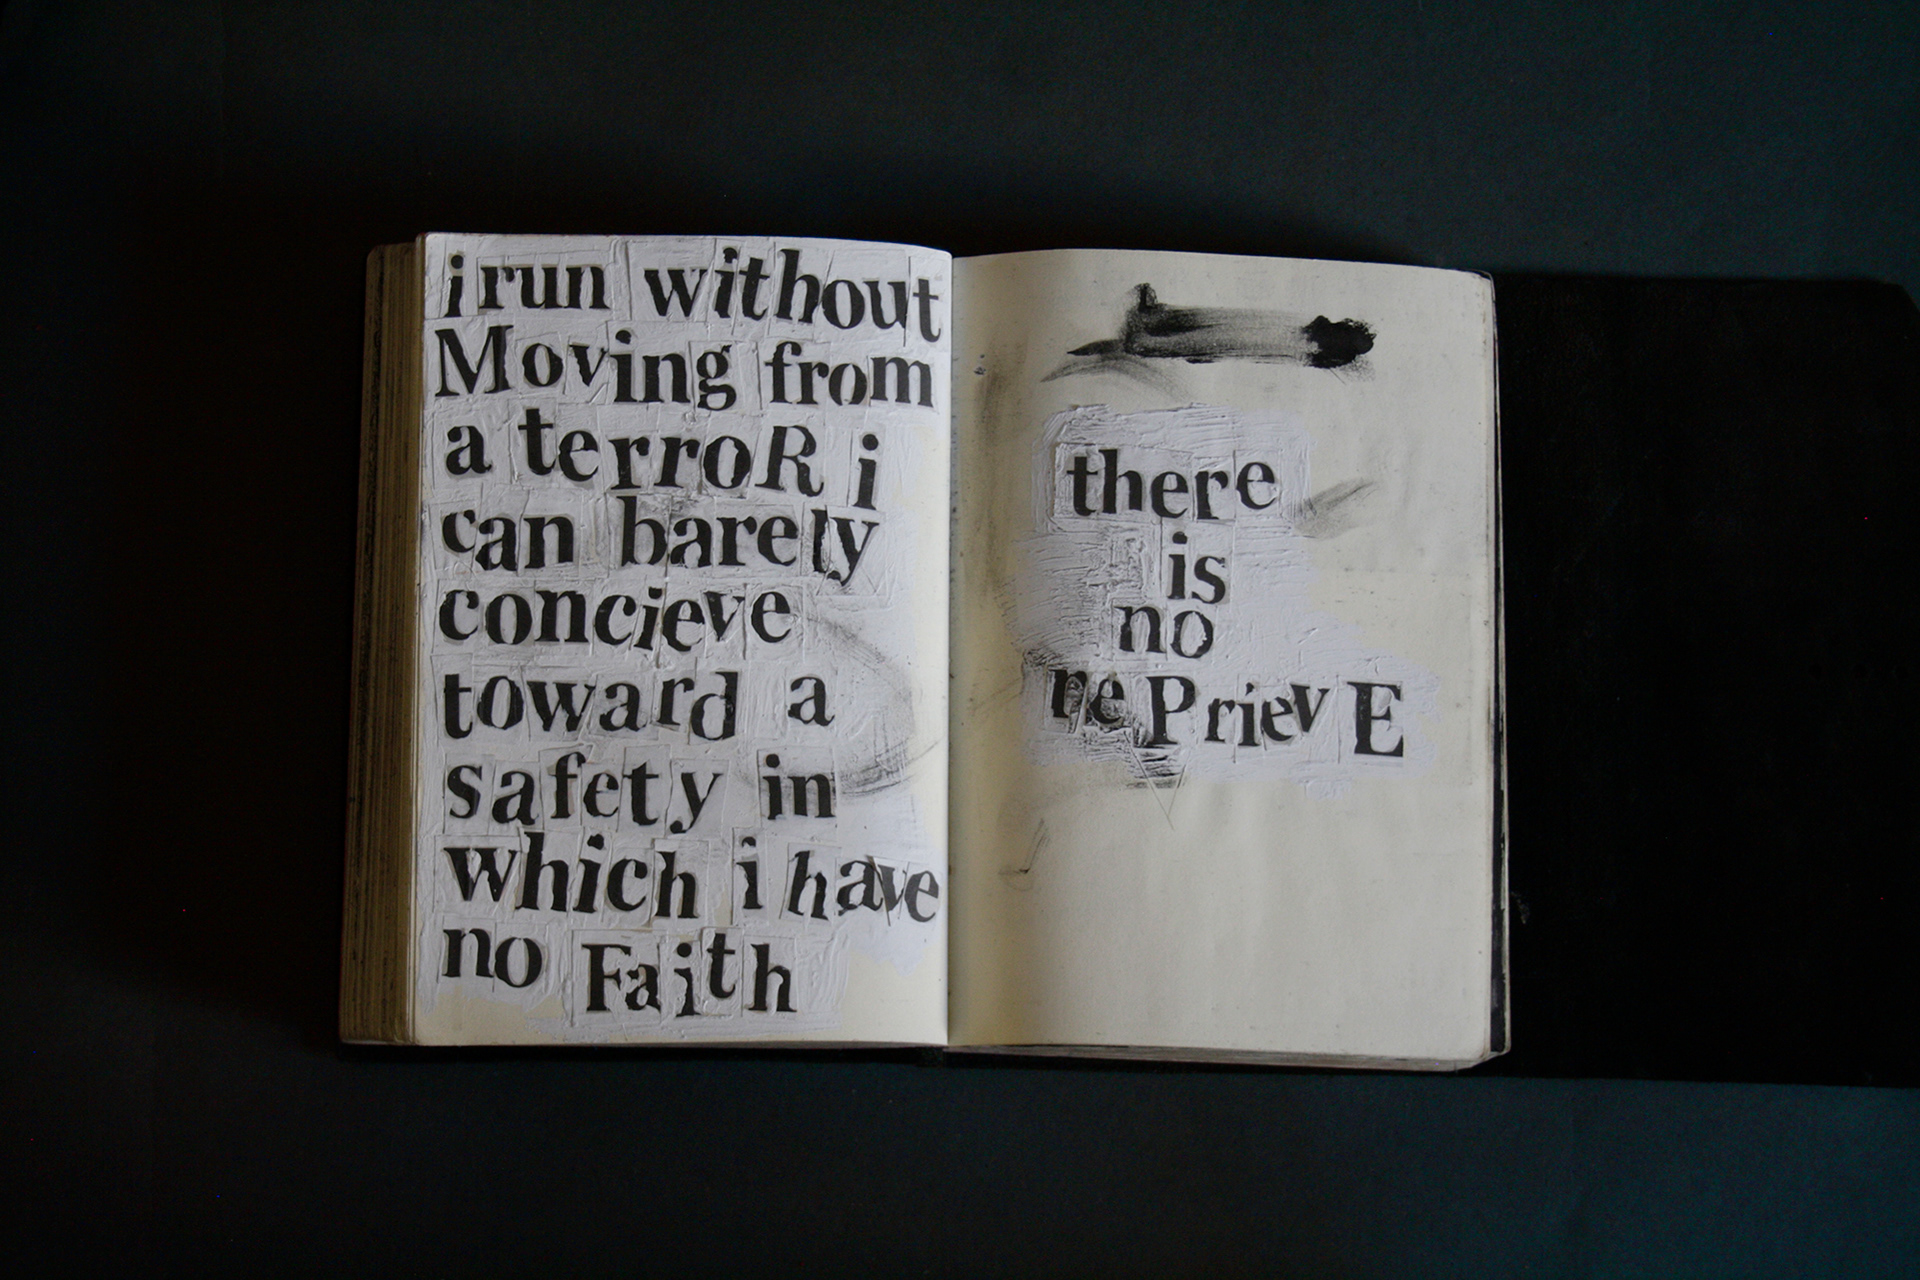 i run without
Moving from
a terroR i
can barely
concieve
toward a
safety in
which i have
no Faith
there
is
no
rePrievE